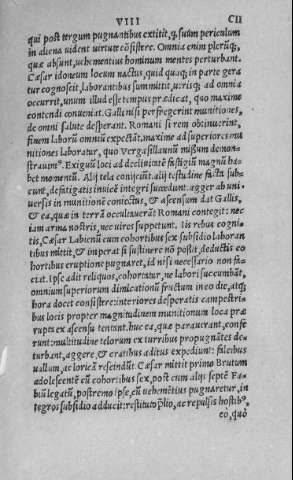 VIII CII
qui post tergum pugnantibus extitit, q̃ suũ periculum
in aliena uident uirtute cõsistere. Omnia enim plerũq;
quæ absunt, uehementius hominum mentes perturbant.
Cæsar idoneum locum nactus, quid quaq; in parte gera
tur cognoscit, laborantibus summittit, utrisq; ad animũ
occurrit, unum illud esse tempus prædicat, quo maxime
contendi conueniat. Galli nisi perfregerint munitiones,
de omni salute desperant. Romani si rem obtinuerint,
finem laborũ omniũ expectãt. maxime ad superiores mu
nitiones laboratur, quo Vergasillaunũ missum demon-
strauimꝰ. Exiguũ loci ad decliuitatẽ fastigiũ magnũ ha-
bet momentũ. Alij tela conijciũt. alij testudine facta subeũ
cunt, defatigatis inuicẽ integri succedunt. agger ab uni-
uersis in munitionẽ coniectus, & ascensum dat Gallis,
& ea, quæ in terrã occultauerãt Romani contegit: nec
iam arma nostris, nec uires suppetunt. Iis rebus cogni-
tis, Cæsar Labienũ cum cohortibus sex subsidio laboran
tibus mittit, & imperat si sustinere nõ possit, deductis co
hortibus eruptione pugnaret, id nisi necessario non fa-
ciat. Ipse adit reliquos, cohortatur, ne labori succumbãt,
omnium superiorum dimicationũ fructum in eo die, atq;
hora docet consistere: interiores desperatis campestri-
bus locis propter magnitudinem munitionum loca præ
rupta ex ascensu tentant. huc ea, quæ parauerant, confe
runt: multitudine telorum ex turribus propugnãtes de-
turbant, aggere, & cratibus aditus expediunt: falcibus
uallum, ac loricã rescindũt. Cæsar mittit primo Brutum
adolescentẽ cũ cohortibus sex, post cum alijs septẽ Fa-
biũ legatũ, postremo ipse, cũ uehemẽtius pugnaretur, in
tegros subsidio adducit: restituto p̃lio, ac repulsis hostibꝰ,
eo, quò